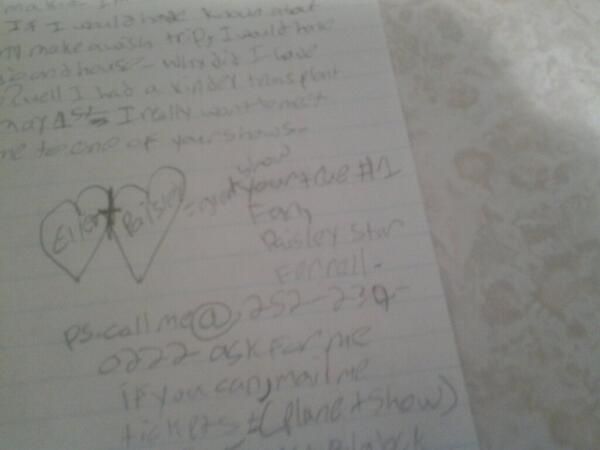 If I would have known about
my make a wish trip, I would have
and house - why did I
well I had a kindey transplant
may 1st I really want to meet
me to one of your shows -
Ellen + Paisley = great show
Your true #1
Fan,
Paisley Star
Ferrell -
ps. call me @, 252-239-
0222 - ask for me
if you can, mail me
tickets (plane + show)